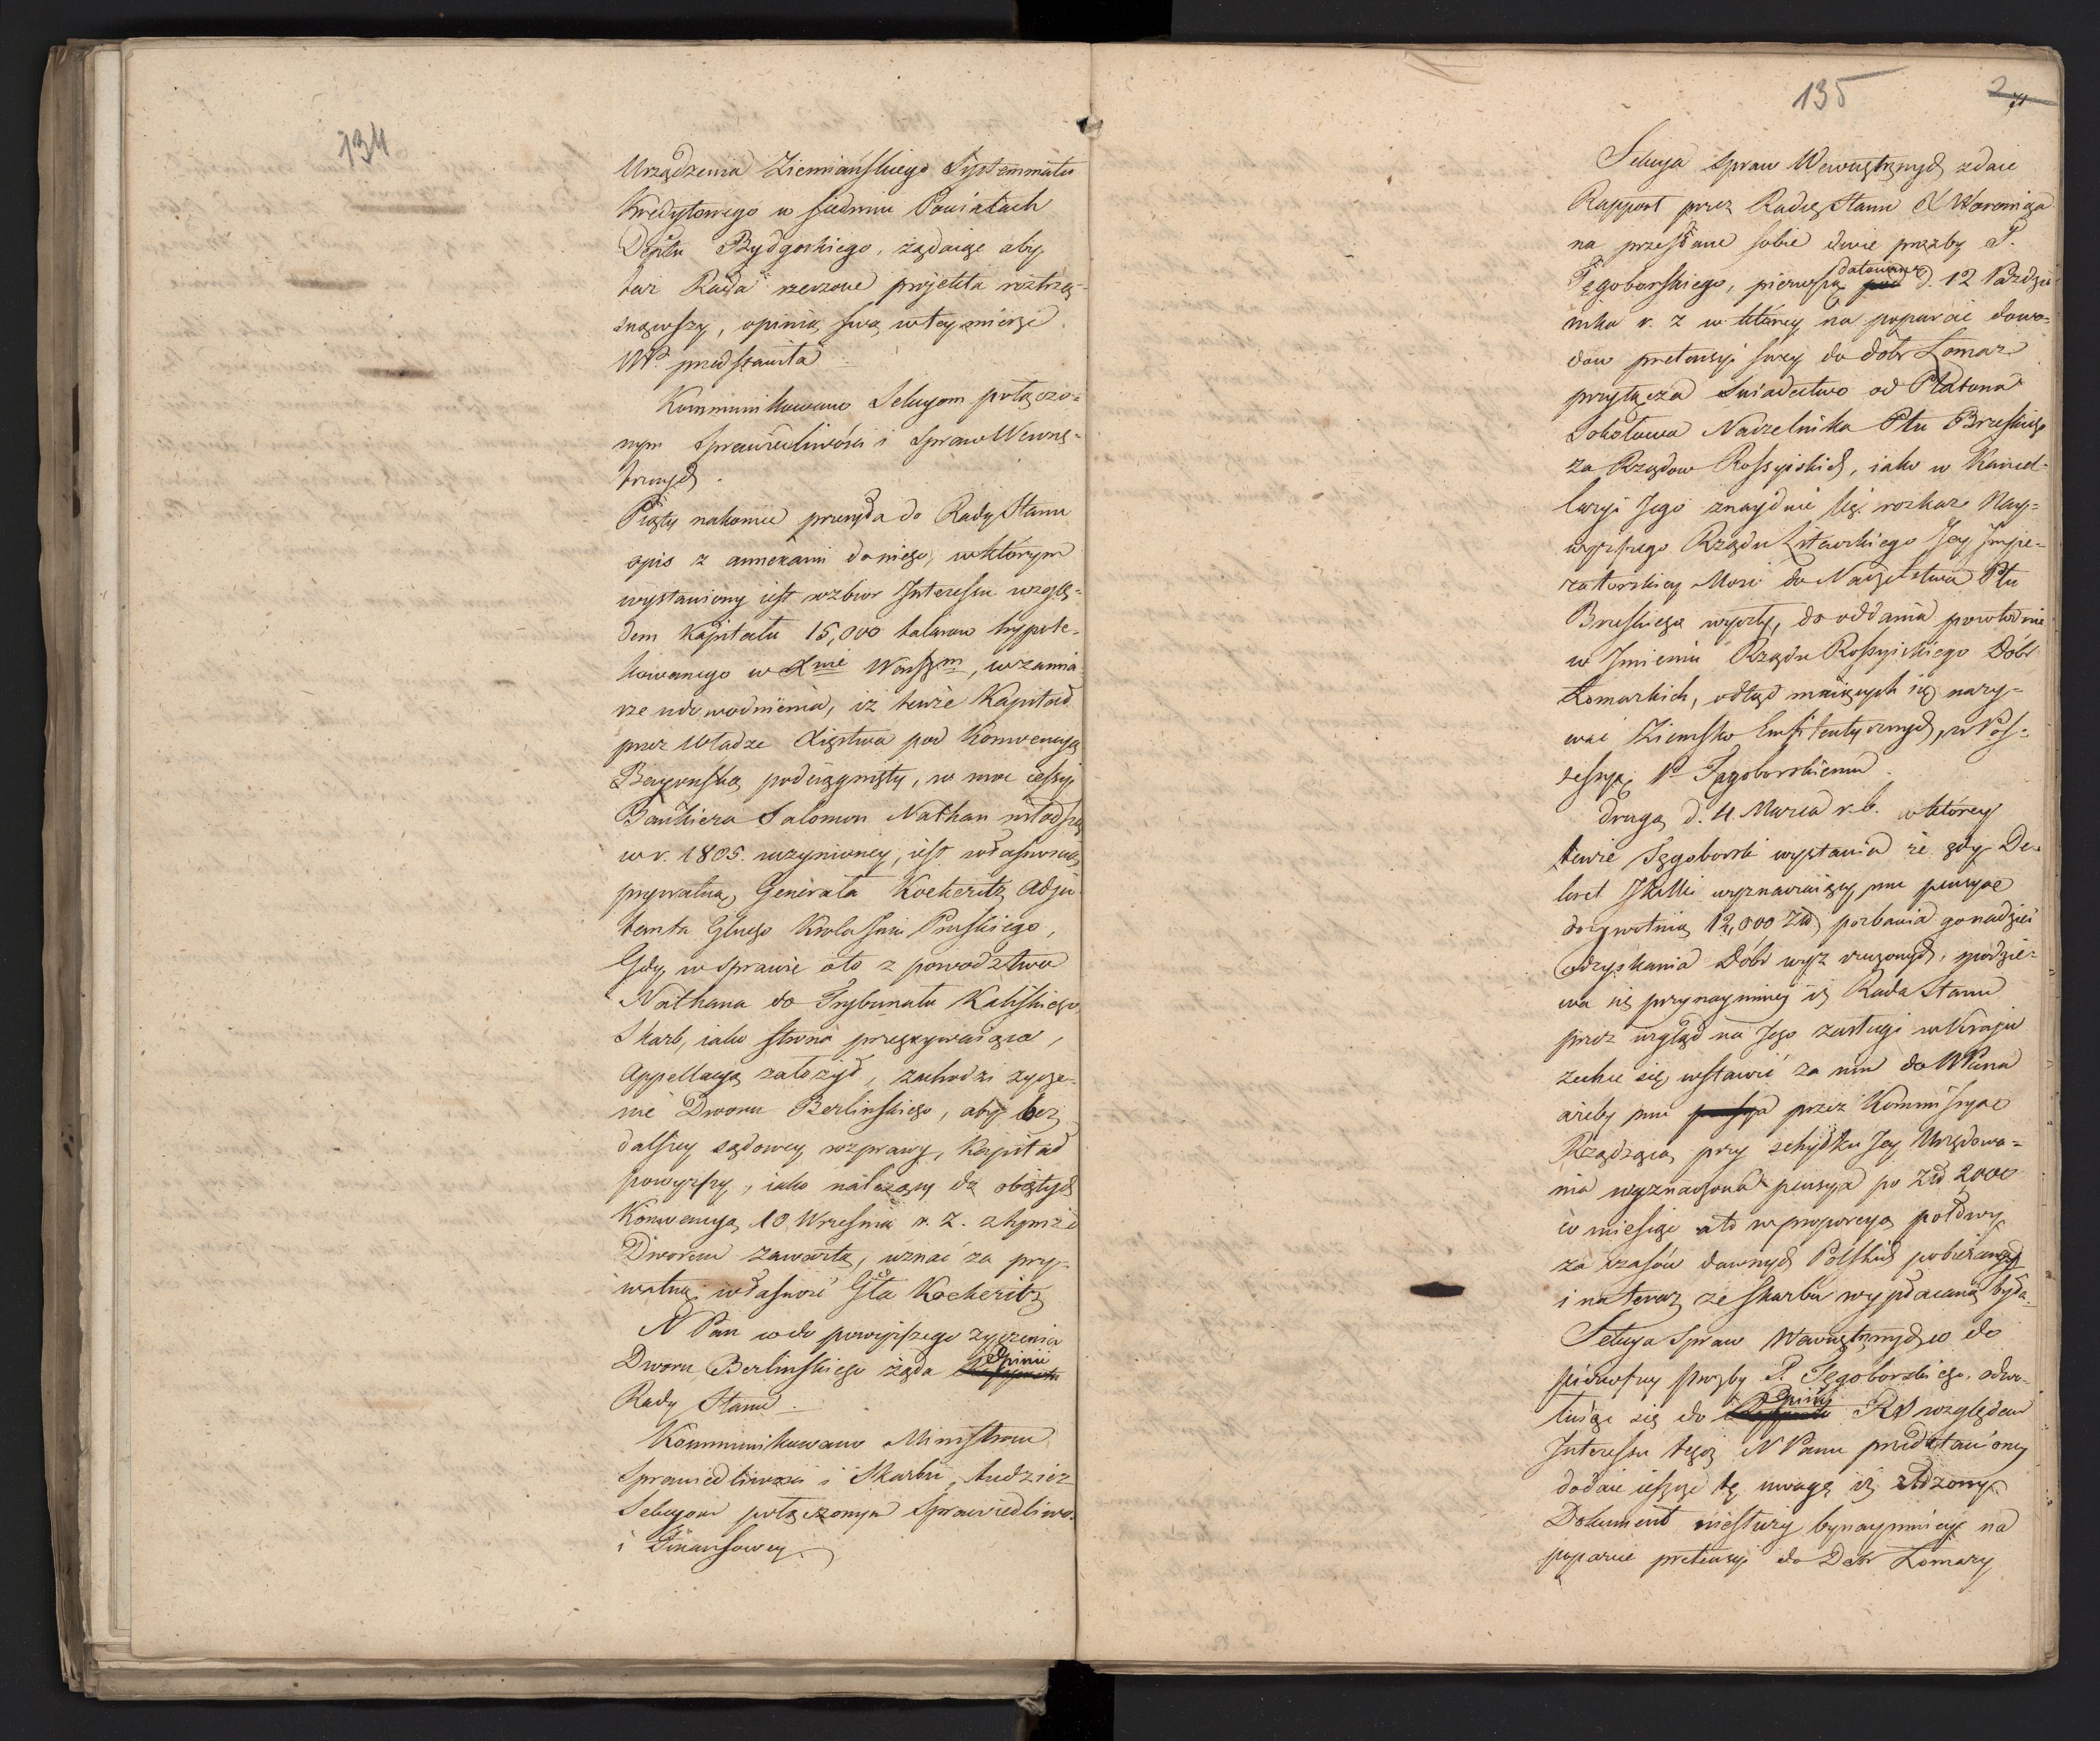 134
Urządzenia Ziemiańskiego Systemmatu
Kredytowego w siedmiu Powiatach
Deptu Bydgoskiego, żądaiąc aby
taż Rada rzeczone projekta roztrzą-
snąwszy, opinią swą w tey mierze
NP. przedstawiła
Kommunikowano Sekcyom połączo-
nym Sprawiedliwości i Spraw Wewnę-
trznych.
Piąty nakoniec przeszła do Rady Stanu
opis z annexami do niego, w którym
wystawiony iest rozbior Interessu wzglę-
dem Kapitału 15,000 talarow hypote-
kowanego w Xwie Warszm, w zamia-
rze udowodnienia, iż tenże Kapitał
przez Władze Xięstwa pod Konwencyą
Bayonską podciągnięty, w moc cessyi
Bankiera Salomon Nathan młodszą
w r. 1805. uczynioney, iest własnością
prywatną Generała Kockeritz Adju-
tanta Głnego Krola Jmci Pruskiego,
Gdy w sprawie oto z powodztwa
Nathana do Trybunału Kaliskiego,
Skarb, iako strona przegrywaiąca,
Appellacyą założył, zachodzi życze-
nie Dworu Berlinskiego, aby bez
dalszey sądowey rozprawy, Kapitał
powyższy, iako należący do obiętych
Konwencyą 10 Wrzesnia r. z. z tymże
Dworem zawartą, uznać za pry-
watną własność Gła Kockeritz
N Pan wedo powyższego życzenia
Dworu Berlinskiego żąda Opinii
Rady Stanu.
Kommunikowano Ministrom
Sprawiedliwości i Skarbu, tudzież
Sekcyom połączonym Sprawiedliwo.
i Finansowey.
135
2
Sekcya Spraw Wewnętrznych zdaie
Rapport przez Radcę Stanu X Woronicza
na przesłane sobie dwie prozby P.
Tęgoborskiego, pierwszą datowaną d. 12 Paździer-
nika r. z w ktorey na poparcie dowo-
dow pretensyi swey do dóbr Łomaz
przyłącza Swiadectwo od Platona
Sokołowa Naczelnika Ptu Brzeskiego
za Rządow Rossyiskich, iako w Kancel-
laryi Jego znayduie się rozkaz Nay-
wyższego Rządu Litewskiego Jey Impe-
ratorskiey Mości do Naczelstwa Ptu
Brzeskiego wyszły, do oddania powtornie
w Imieniu Rządu Rossyiskiego Dóbr
Łomaskich, odtąd maiących się nazy-
wać Ziemsko Emfiteutycznych, w Pos-
sessyą P. Tęgoborskiemu.
Drugą d. 4. Marca r. b. w ktorey
tenże Tęgoborski wystawia że gdy De-
kret JKMci wyznaczaiący mu pensyą
dożywotnią 12,000 Zł, pozbawia go nadziei
odzyskania Dóbr wyż rzeczonych, spodzie-
wa się przynaymniey iż Rada Stanu
przez wzgląd na Jego zasługi w Kraju
zechce się wstawić za nim do NPana
ażeby mu pensya przez Kommissyą
Rządzącą przy schyłku Jey Urzędowa-
nia wyznaczona pensya po Zł 2,000
co miesiąc ato w proporcyą połowy
za czasów dawnych Polskich pobieraney
i na teraz ze Skarbu wypłacaną była.
Sekcya Spraw Wewnętrznych co do
pierwszey prozby P. Tęgoborskiego, odwo-
łuiąc się do Opinii RS względem
Interessu tego NPanu przedstawioney
dodaie ieszcze tę uwagę iż złożony
Dokument niesłuży bynaymniey na
poparcie pretensyi do Dóbr Łomazy